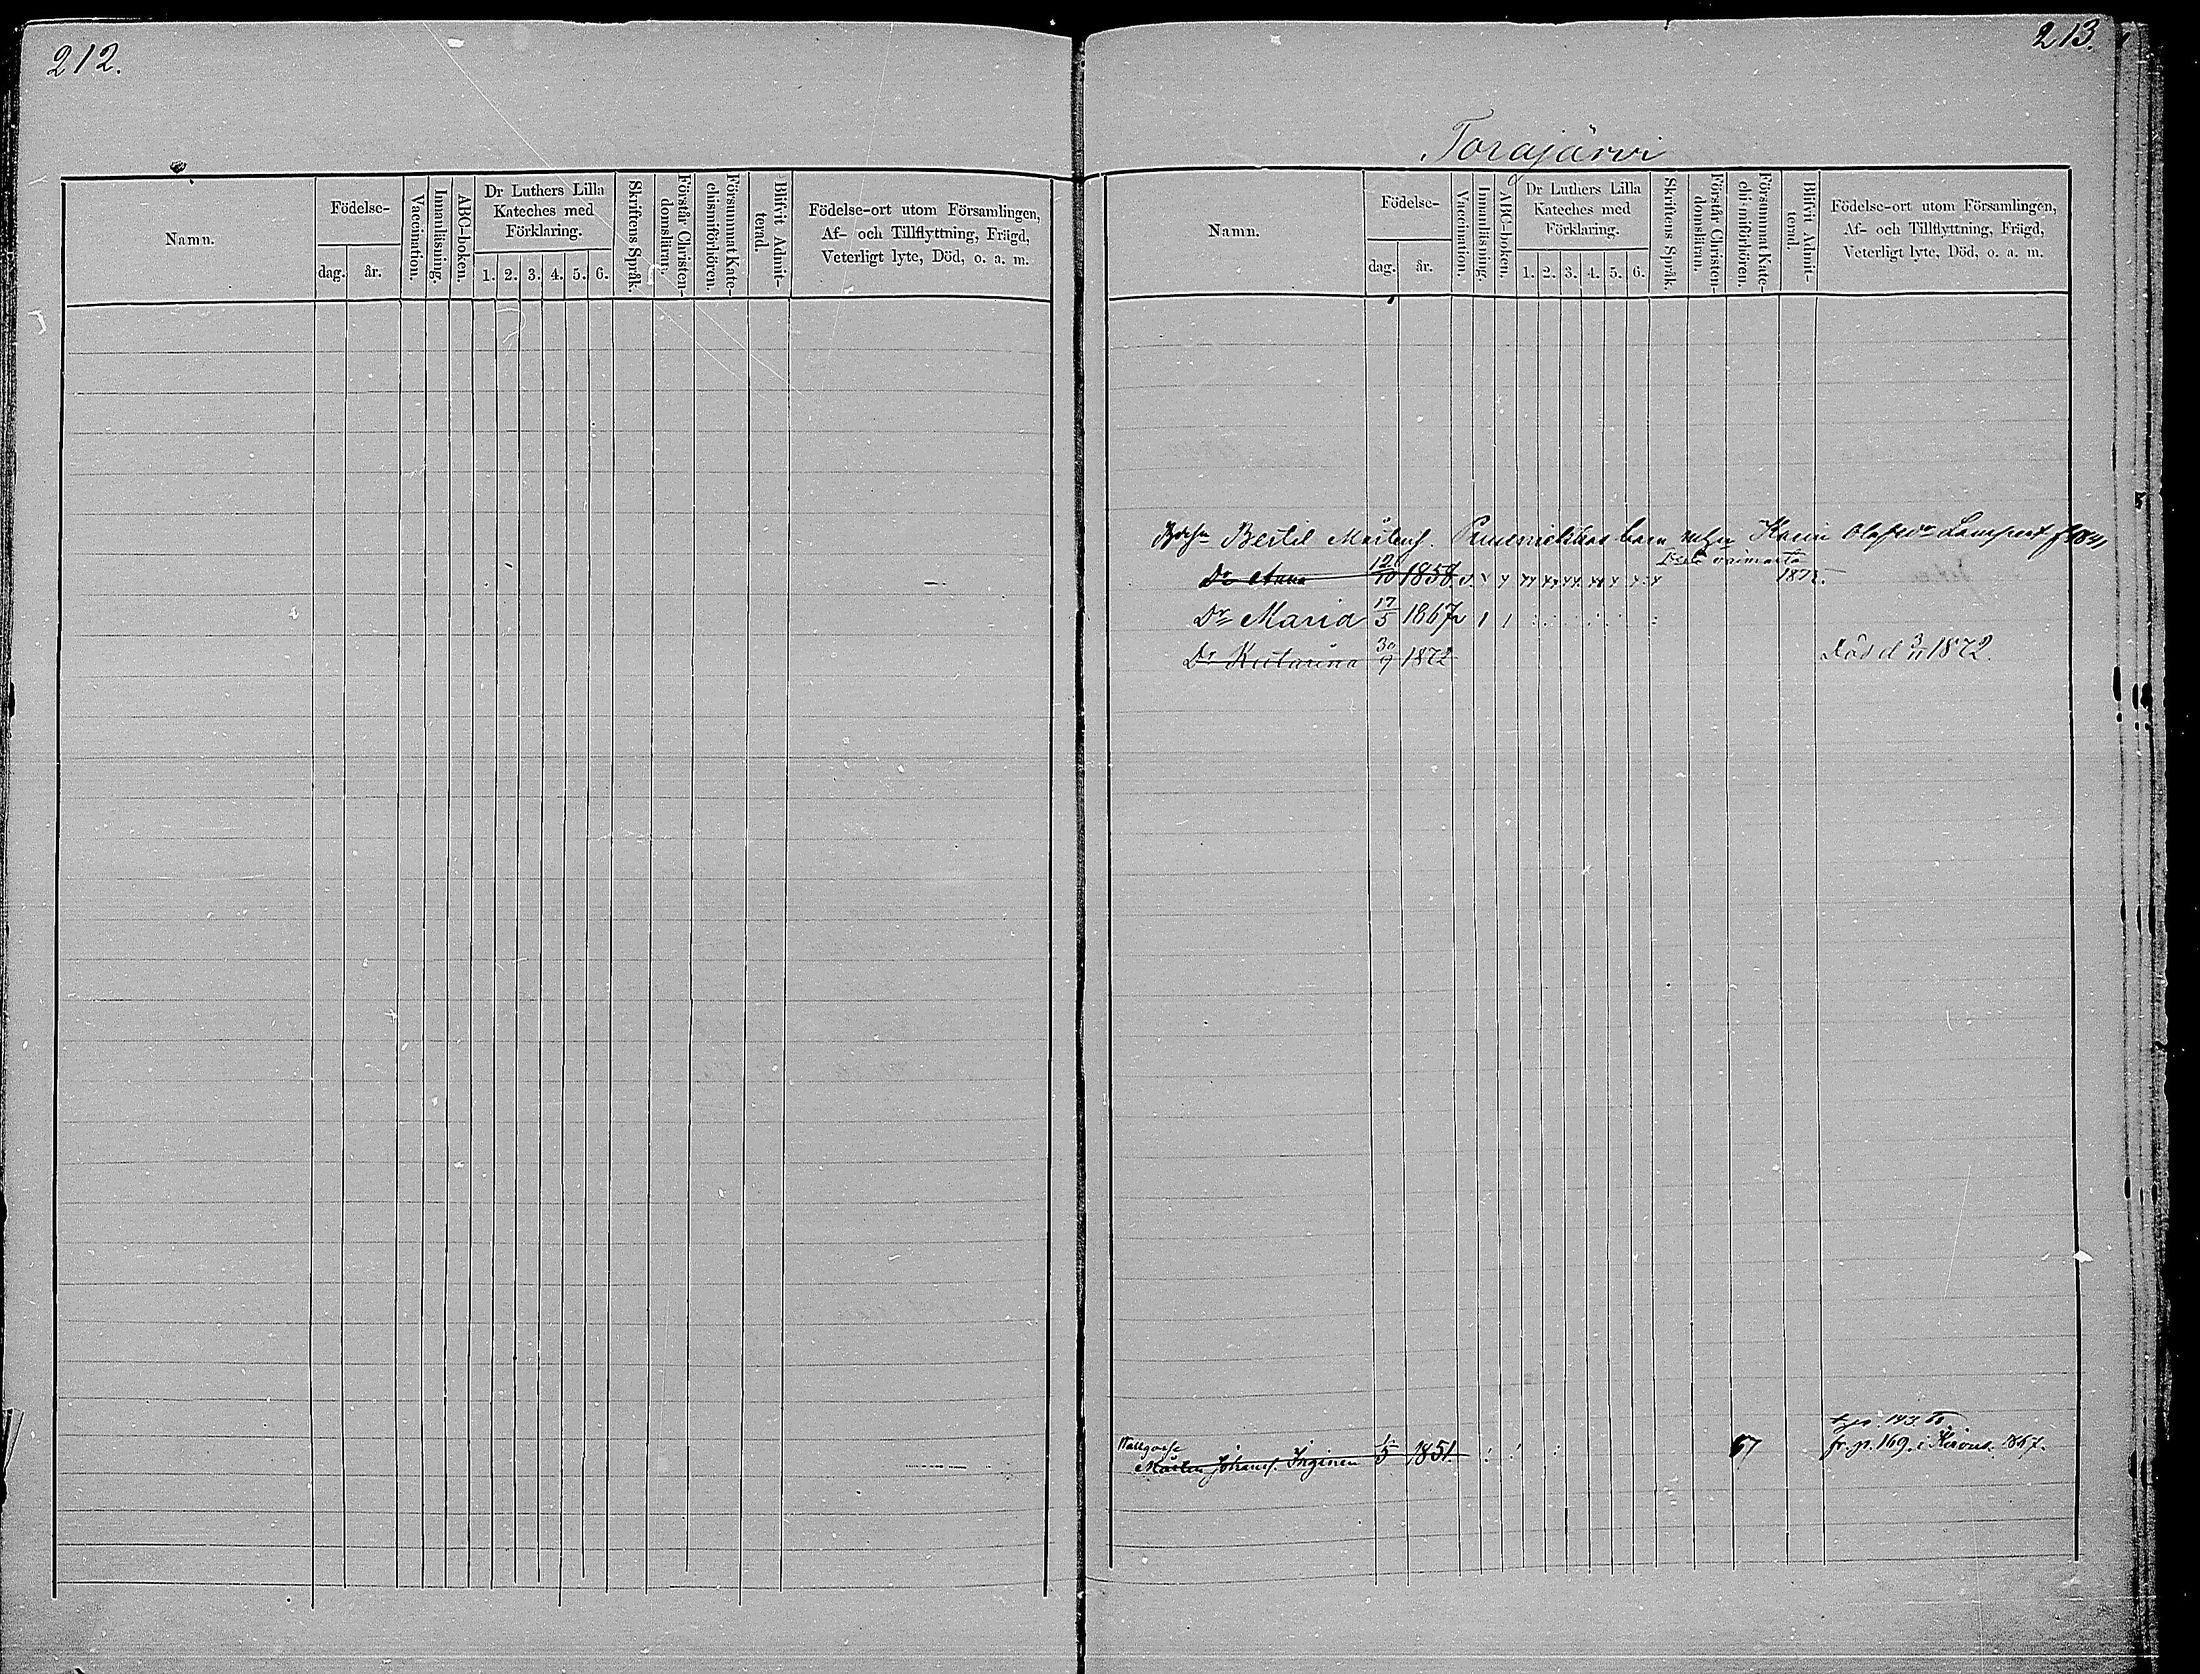 212.
Namn.
Födelse-
dag.
år.
Vaccination.
Innanläsning.
ABC-boken.
Dr Luthers Lilla
Kateches med
Förklaring.
1. 2. 3. 4. 5. 6.
Skriftens Språk.
Förstår Christen-
domsläran.
Försummat Kate-
chismiförhören.
Blifvit Admit-
terad.
Födelse-ort utom Församlingen,
Af- och Tillflyttning, Frägd,
Veterligt lyte, Död, o. a. m.
213.
Torajärvi
Namn.
Födelse-
dag.
år.
Vaccination.
Innanläsning.
ABC-boken.
Dr Luthers Lilla
Kateches med
Förklaring.
1. 2. 3. 4. 5. 6.
Skriftens Språk.
Förstår Christen-
domsläran.
Försummat Kate-
chismiförhören.
Blifvit Admit-
terad.
Födelse-ort utom Församlingen,
Af- och Tillflyttning, Frägd,
Veterligt lyte, Död, o. a. m.
Bertil Mårtens. barn Karin
Dr Anna 12/10 1858
Dr Maria 17/5 1867
Dr Katarina 30/9 1872 Död 3/11 1872.
143.
Vallgosse
Mårten Johans. 1/5 1851. 67 fr. p. 169. i 1867.